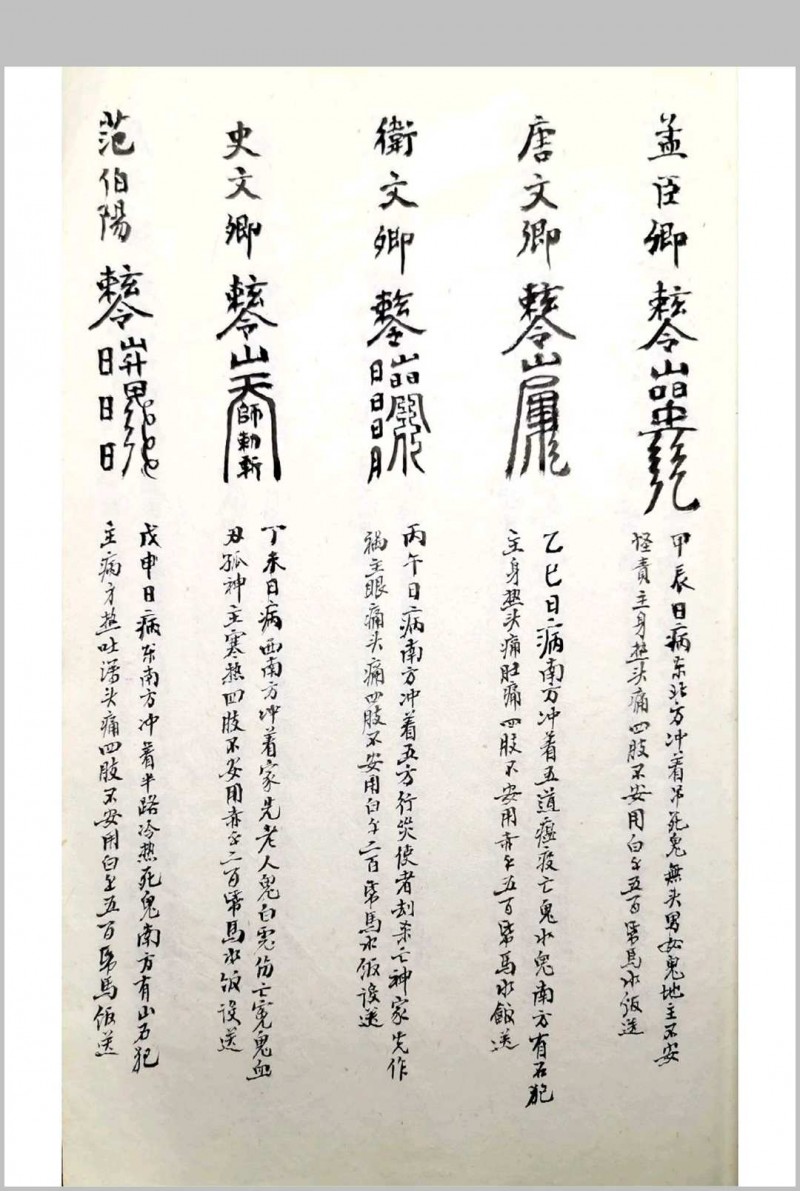 孟臣卿
甲辰日病东北方冲着吊死鬼無头男女鬼地主不安
怪責主身热头痛四肢不安用白𠦑五百張馬水饭送
唐文卿
乙巳日病南方冲着五道瘟疫亡鬼水鬼南方有石犯
主身热头痛肚痛四肢不安用赤𠦑五百張馬水飯送
衛文卿
丙午日病南方冲着五方行災使者刦杀亡神家先作
禍主眼痛头痛四肢不安用白二百張馬水饭送
史文卿 敕令山天師勅斬
丁未日病西南方冲着家先老人鬼白虎伤亡冤鬼血
刃孤神主寒热四肢不安用赤二百張馬水饭送
范伯陽 日日日
戊申日病东南方冲着半路冷热死鬼南方有山石犯
主病方热吐瀉头痛四肢不安用白五百張馬饭送